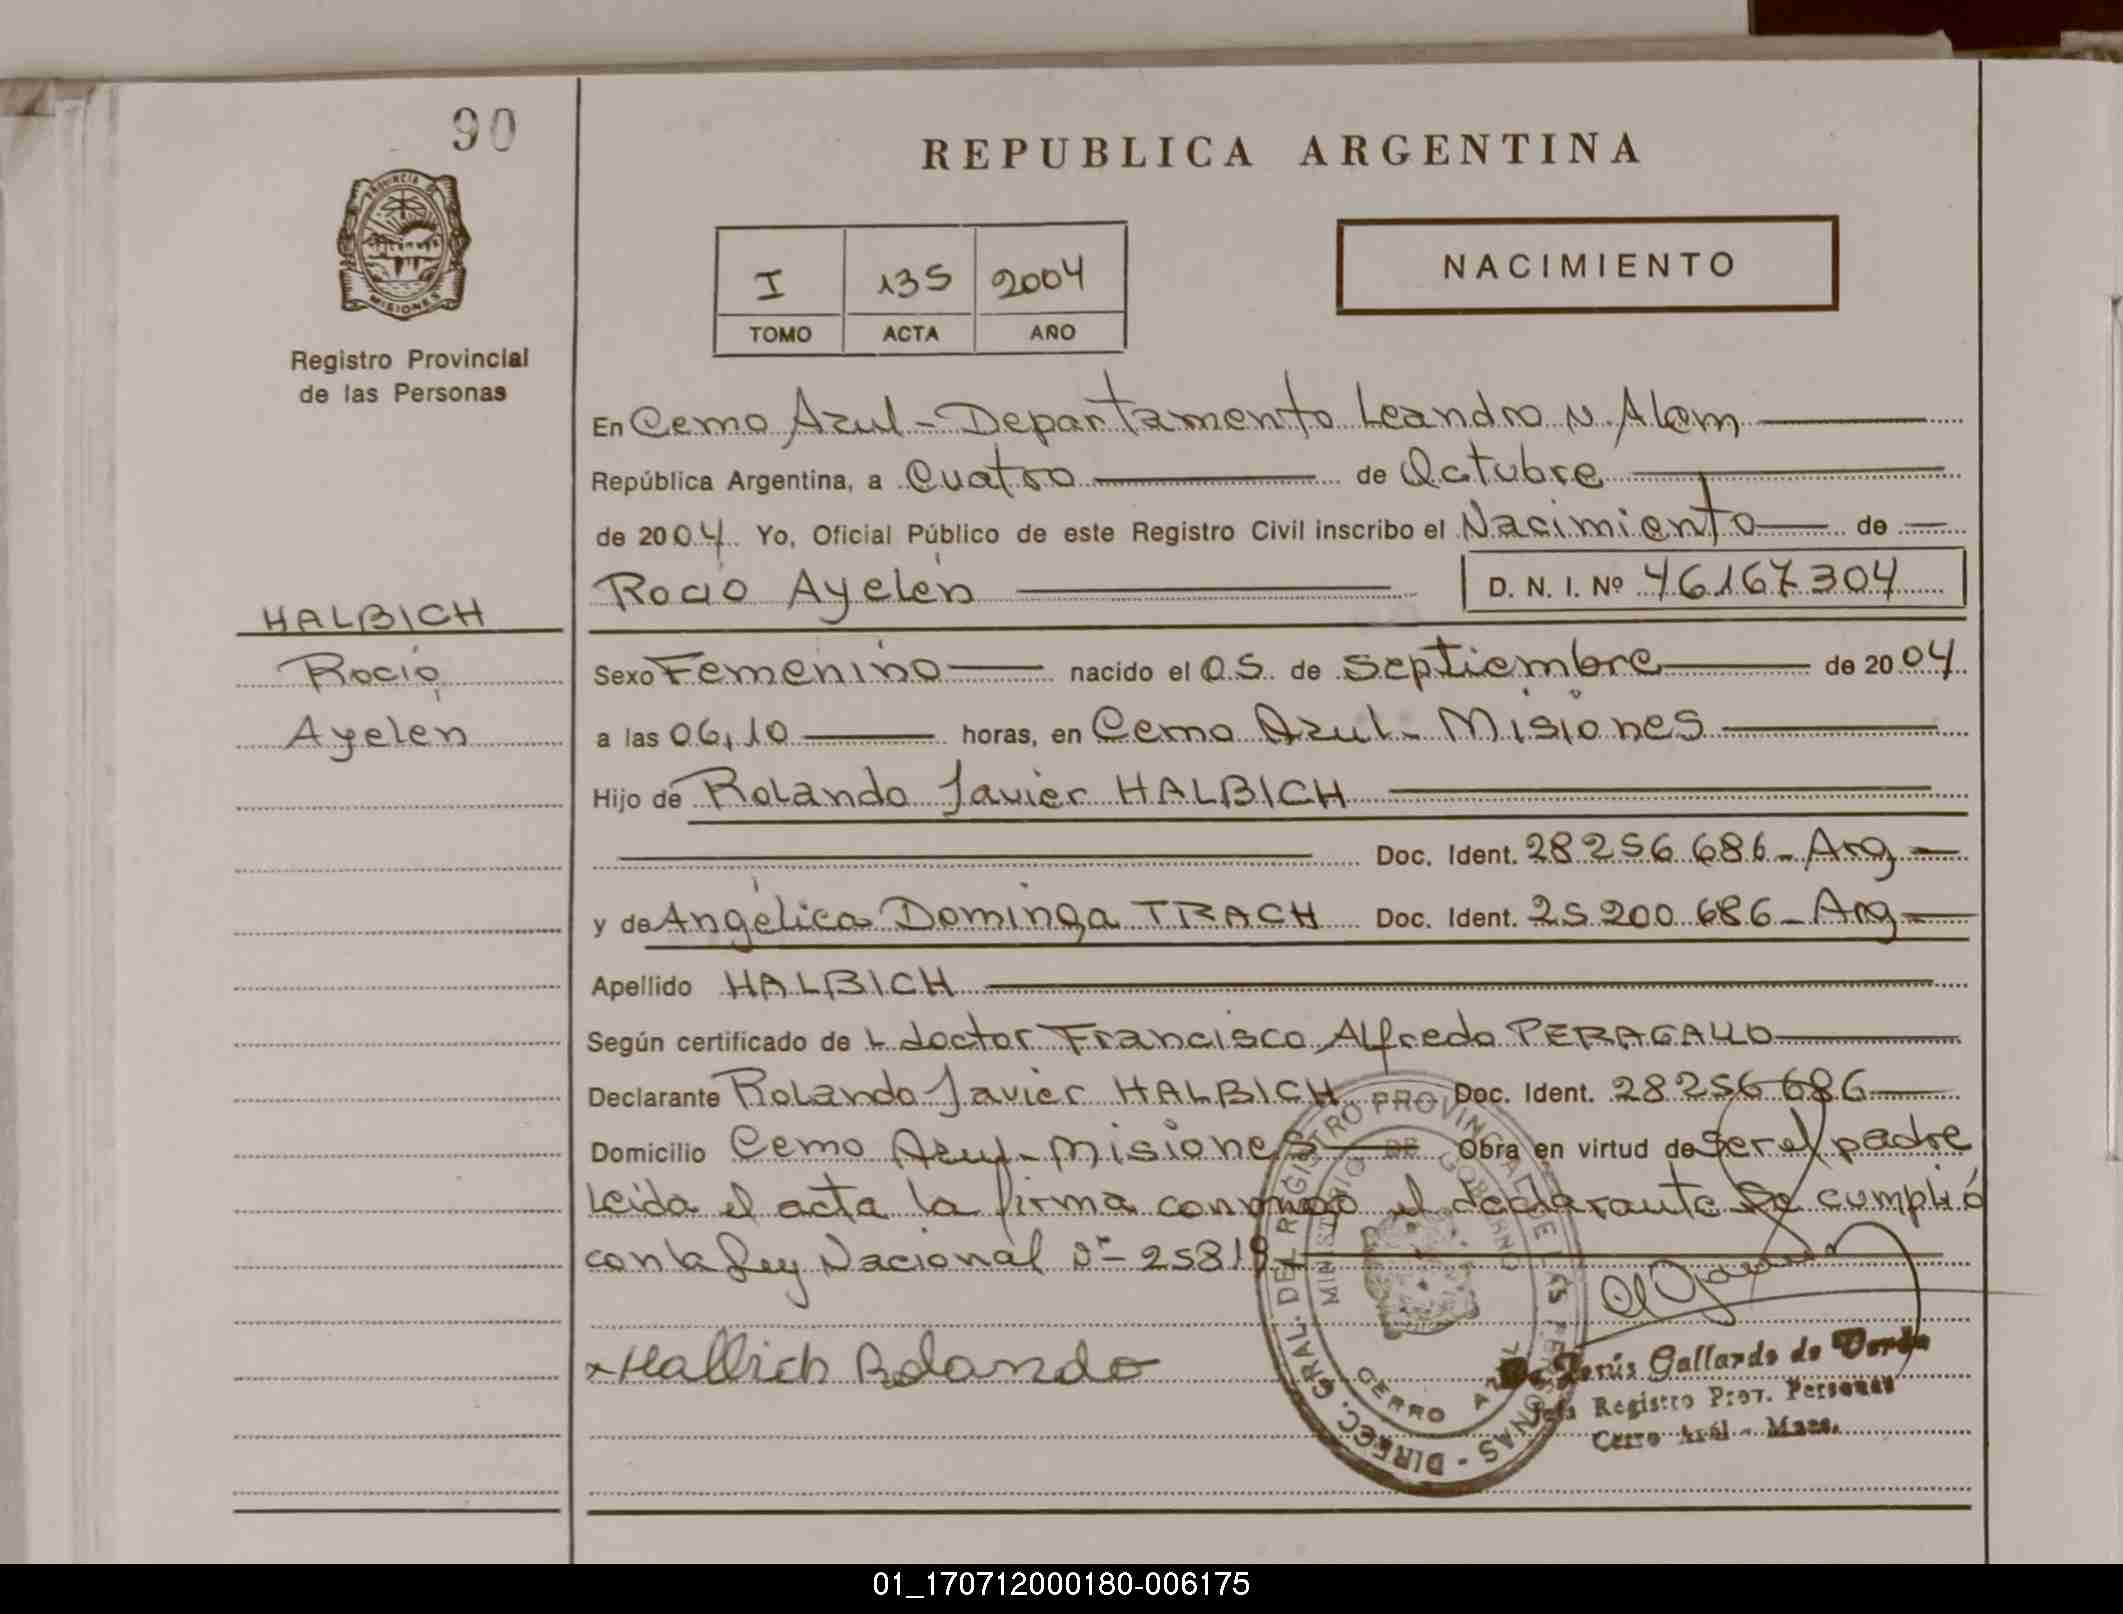 90
REPUBLICA ARGENTINA
PROVINCIA DE
MISIONES
Registro Provincial
de las Personas
I 135 2004
TOMO ACTA AÑO
NACIMIENTO
En Cerro Azul - Departamento Leandro N. Alem
República Argentina, a Cuatro de Octubre
de 2004 Yo, Oficial Público de este Registro Civil inscribo el Nacimiento de
Rocío Ayelén D. N. I. Nº 46167304
HALBICH
Rocío
Ayelén
Sexo Femenino nacido el 05 de septiembre de 2004
a las 06,10 horas, en Cerro Azul - Misiones
Hijo de Rolando Javier HALBICH
Doc. Ident. 28 256 686 - Arg
y de Angélica Dominga TRACH Doc. Ident. 25 200 686 - Arg
Apellido HALBICH
Según certificado de L doctor Francisco Alfredo PERAGALLO
Declarante Rolando Javier HALBICH Doc. Ident. 28256686
Domicilio Cerro Azul - Misiones Obra en virtud de ser el padre
Leída el acta la firma conmigo el declarante Se cumplió
con la Ley Nacional Nº 25819
x Halbich Rolando
DIRECC. GRAL. DEL REGISTRO PROVINCIAL DE LAS PERSONAS -
MINISTERIO DE GOBIERNO
CERRO AZUL
Jesús Gallardo de
Jefa Registro Prov. Personas
Cerro Azul - Mnes.
01_170712000180-006175